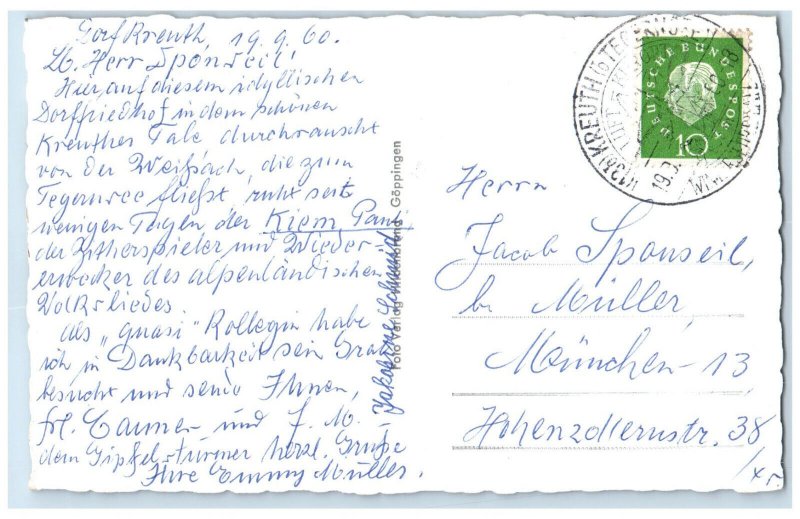 Dorf Kreuth, 19.9.60.
Lb. Herr Sponseil!
Hier auf diesem idyllischen
Dorffriedhof in dem schönen
Kreuther Tale durchrauscht
von der Weißach, die zum
Tegernsee fließt, ruht seit
wenigen Tagen der Kiem Pauli
der Zitherspieler und Wieder-
erwecker des alpenländischen
Volksliedes.
Als "quasi" Kollegin habe
ich in Dankbarkeit sein Grab
besucht und sende Ihnen,
frl. und J. M.
dem Gipfelstürmer herzl. Grüße
Ihre Emmy Müller.
Jakobine Schmid
Foto Verlag Göppingen
DEUTSCHE BUNDESPOST
10
(13b) KREUTH ü. TEGERNSEE
Herrn
Jacob Sponseil,
b. Müller,
München-13
Hohenzollernstr. 38
/xr.